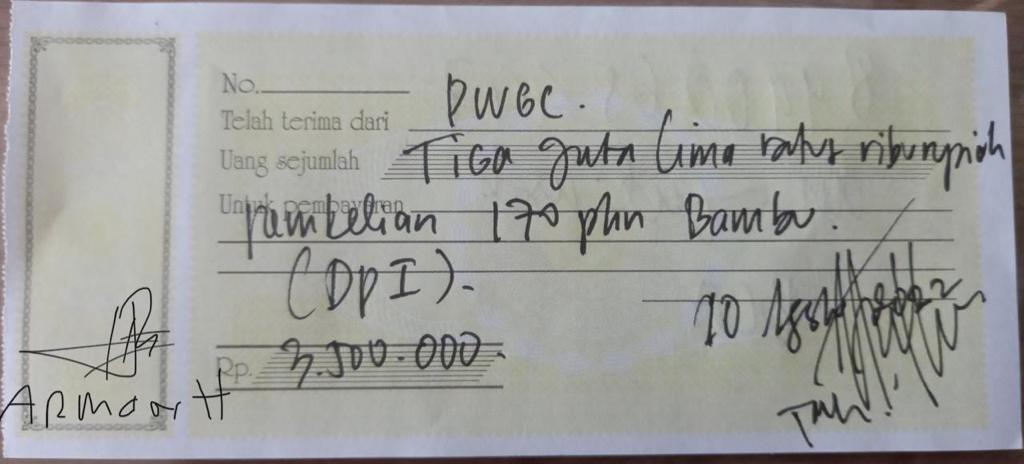 No.
DWGC.
Telah terima dari
Uang sejumlah Tiga juta lima ratus ribu rupiah
Untuk pembayaran
pembelian 170 phn Bambu.
(DP I).
10 2022
Rp. 3.500.000.